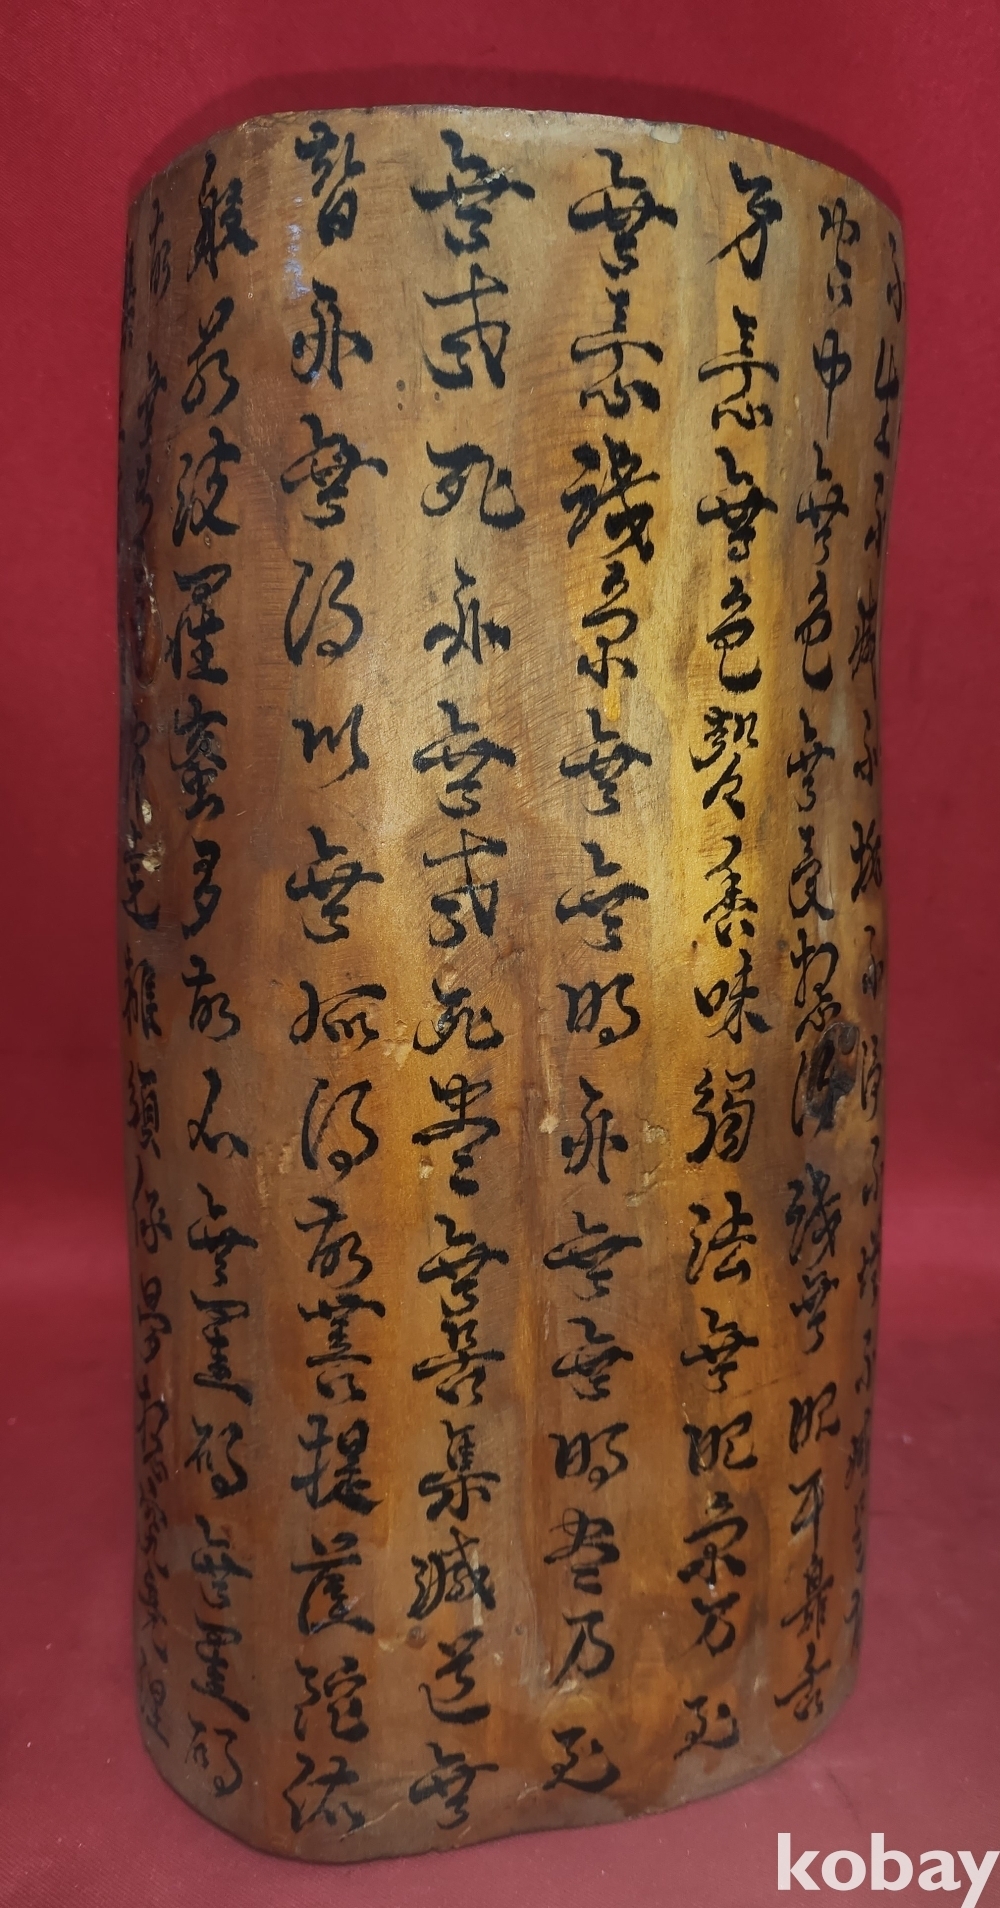 不生不滅不垢不淨不增不減是故
空中無色無受想行識無眼耳鼻舌
身意無色聲香味觸法無眼界乃至
無意識界無無明亦無無明盡乃至
無老死亦無老死盡無苦集滅道無
智亦無得以無所得故菩提薩陀依
般若波羅蜜多故心無罣碍無罣碍
故無有恐怖遠離顚倒夢想究竟涅
槃
kobay